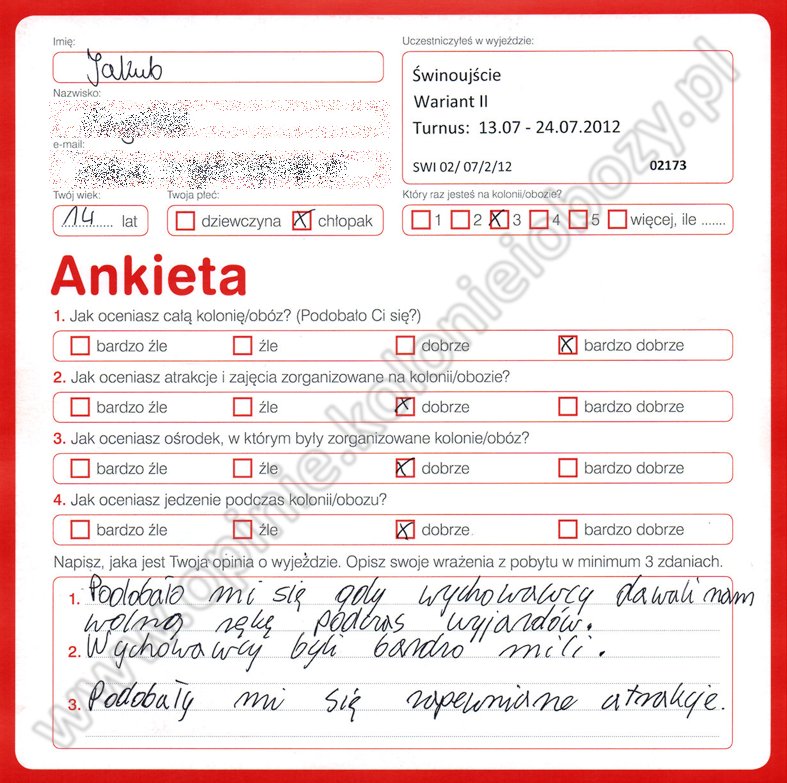 Imię:
Jakub
Uczestniczyłeś w wyjeździe:
Świnoujście
Wariant II
Turnus: 13.07 - 24.07.2012
SWI 02/ 07/2/12 02173
Nazwisko:
e-mail:
Twój wiek:
14 lat
Twoja płeć:
dziewczyna chłopak
Który raz jesteś na kolonii/obozie?
1 2 3 4 5 więcej, ile .......
Ankieta
1. Jak oceniasz całą kolonię/obóz? (Podobało Ci się?)
bardzo źle źle dobrze bardzo dobrze
2. Jak oceniasz atrakcje i zajęcia zorganizowane na kolonii/obozie?
bardzo źle źle dobrze bardzo dobrze
3. Jak oceniasz ośrodek, w którym były zorganizowane kolonie/obóz?
bardzo źle źle dobrze bardzo dobrze
4. Jak oceniasz jedzenie podczas kolonii/obozu?
bardzo źle źle dobrze bardzo dobrze
Napisz, jaka jest Twoja opinia o wyjeździe. Opisz swoje wrażenia z pobytu w minimum 3 zdaniach.
1. Podobało mi się gdy wychowawcy dawali nam
wolną rękę podczas wyjazdów.
2. Wychowawcy byli bardzo mili.
3. Podobały mi się zapewniane atrakcje.
www.opinie.kolonieiobozy.pl